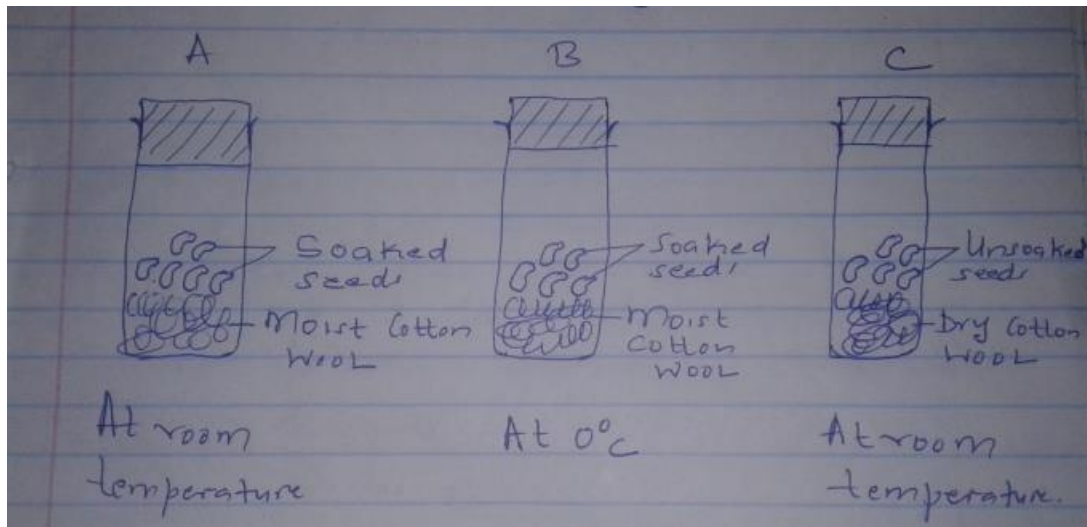 A
B
C
Soaked
seeds
Moist Cotton
Wool
At room
temperature
Soaked
seeds
Moist
Cotton
Wool
At 0°C
Unsoaked
seeds
Dry Cotton
Wool
At room
temperature.